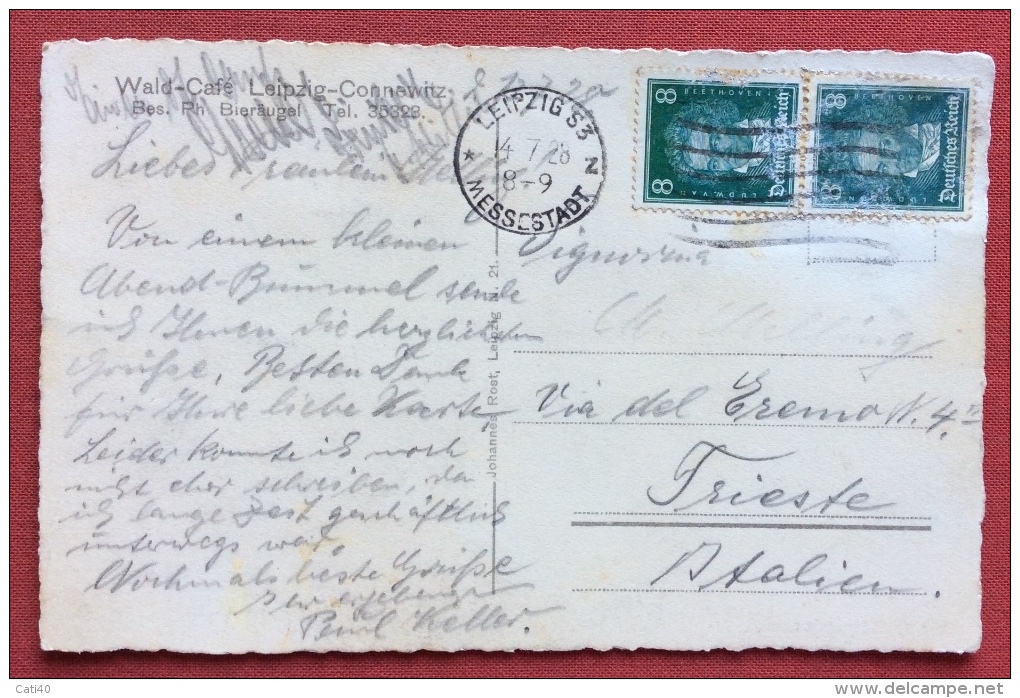 Wald-Café Leipzig-Connewitz
Bes. Ph. Bieräugel Tel. 35323.
Liebes Fräulein
Von einem kleinen
Abend-Bummel sende
ich Ihnen die herzlichsten
Grüße, Besten Dank
für Ihre liebe Karte
Leider konnte ich noch
nicht eher schreiben, da
ich lange Zeit geschäftlich
unterwegs war.
Nochmals beste Grüße
Ihr ergebener
Paul Keller.
Johannes Rost, Leipzig N. 21.
LEIPZIG S3
14.7.28
8-9
N
MESSESTADT
8
8
BEETHOVEN
LUDW. VAN
Deutsches Reich
8
8
BEETHOVEN
LUDW. VAN
Deutsches Reich
Signorina
Via del Eremo N. 4
Trieste
Italien.
Cati40
www.delcampe.net